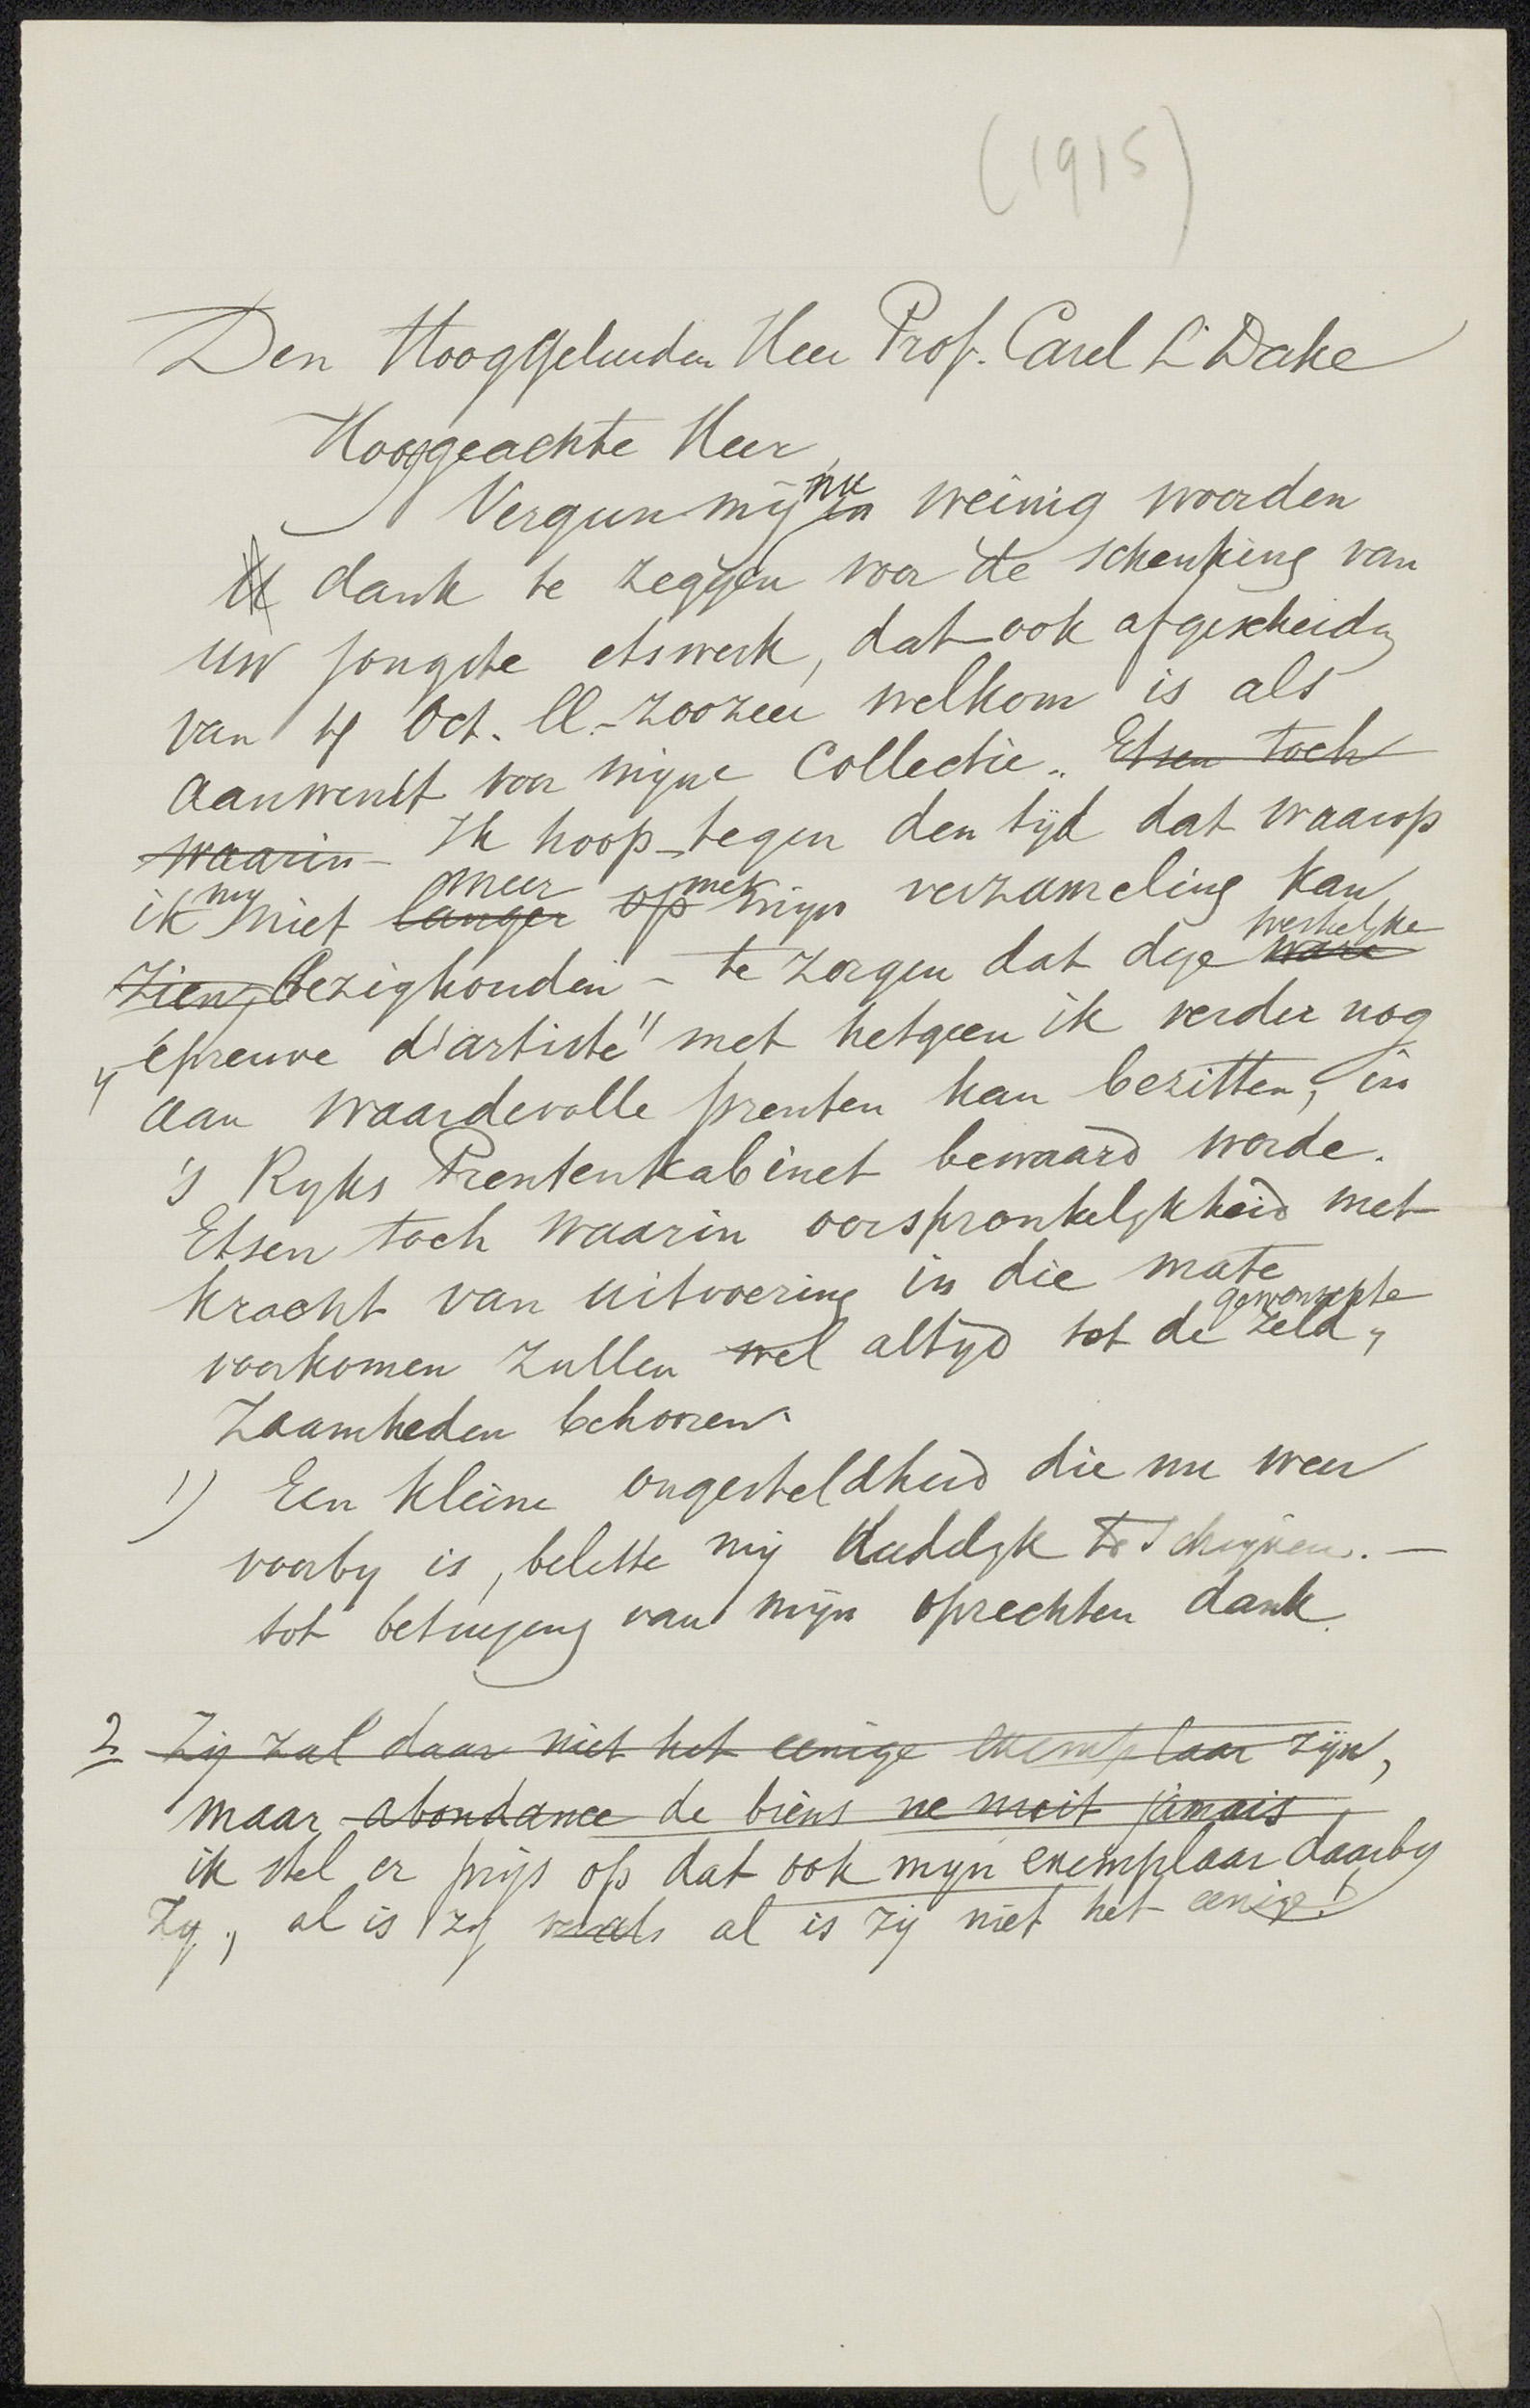 (1915)
Den Hooggeleerden Heer Prof. Carel L Dake
Hooggeachte Heer,
Vergun mij in nu weinig woorden
U dank te zeggen voor de schenking van
uw jongste etswerk, dat ook afgescheiden
van 4 Oct. ll. zoozeer welkom is als
aanwinst voor mijne Collectie. Etsen toch
waarin Ik hoop tegen den tijd dat waarop
ik my niet langer meer op met mijn verzameling kan
zien, bezighouden – te zorgen dat deze ware werkelijke
„epreuve d'artiste" met hetgeen ik verder nog
aan waardevolle prenten kan bezitten, in
's Ryks Prentenkabinet bewaard worde.
Etsen toch waarin oorspronkelykheid met
kracht van uitvoering in die mate
voorkomen zullen wel altyd tot de gewenschte zeld„
zaamheden behooren.
1) Een kleine ongesteldheid die nu weer
voorby is, belette mij dadelyk te schryven. —
tot betuiging van mijn oprechten dank.
2 Zij zal daar niet het eenige exemplaar zijn,
maar abondance de biens ne nuit jamais
ik stel er prijs op dat ook mijn exemplaar daarby
zy, al is zy al is zij niet het eenige.